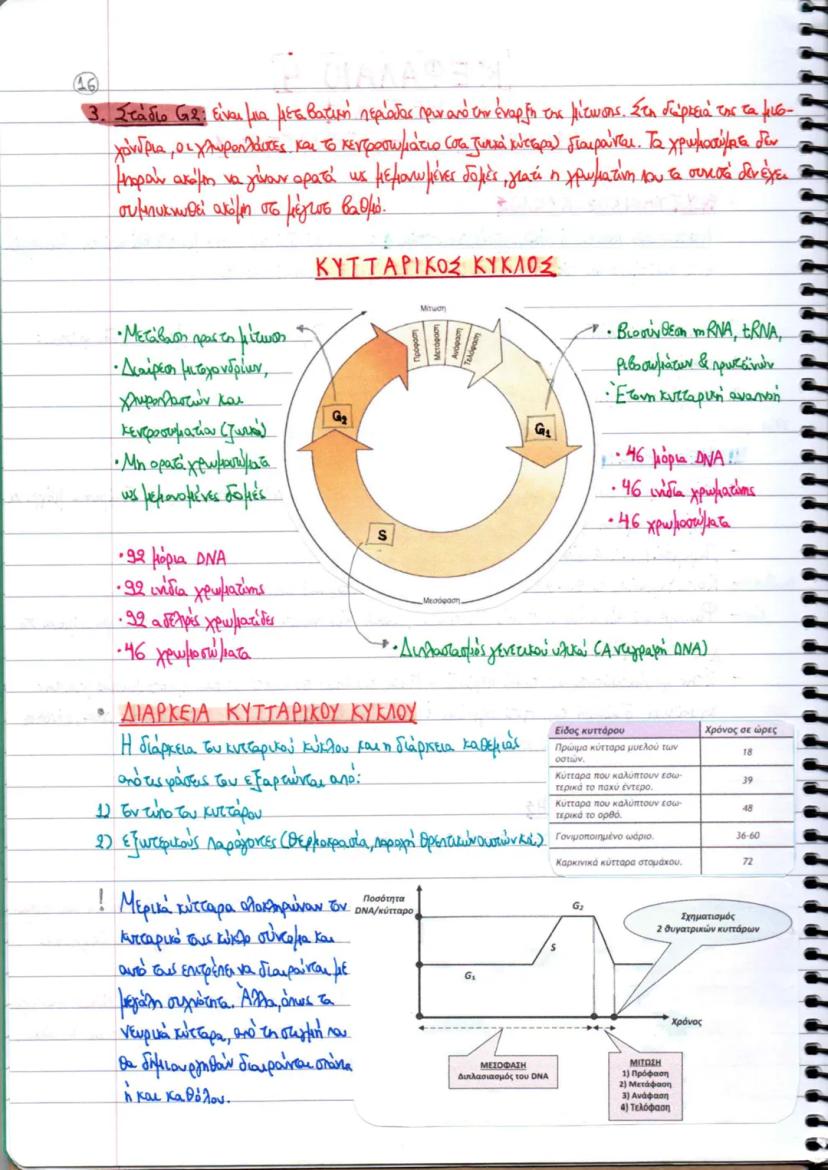 16
3. Στάδιο G2: είναι μια μεταβατική περίοδος πριν από την έναρξη της μίτωσης. Στη διάρκειά της τα μιτο-
χόνδρια, οι χλωροπλάστες και το κεντροσωμάτιο (στα ζωικά κύτταρα) διαιρούνται. Τα χρωμοσώματα δεν
μπορούν ακόμη να γίνουν ορατά ως μεμονωμένες δομές, γιατί η χρωματίνη που τα συνιστά δεν έχει
συμπυκνωθεί ακόμη στο μέγιστο βαθμό.
ΚΥΤΤΑΡΙΚΟΣ ΚΥΚΛΟΣ
• Μετάβαση προς τη μίτωση
• Διαίρεση μιτοχονδρίων,
χλωροπλαστών και
κεντροσωματίου (ζωικά)
• Μη ορατά χρωμοσώματα
ως μεμονομένες δομές
Μίτωση
Πρόφαση
Μετάφαση
Ανάφαση
Τελόφαση
G2
G1
S
Μεσόφαση
• Βιοσύνθεση mRNA, tRNA,
ριβοσωμάτων & πρωτεϊνών
• Έτονη κυτταρική αναπνοή
• 46 μόρια DNA
• 46 ινίδια χρωματίνης
• 46 χρωμοσώματα
• 92 μόρια DNA
• 92 ινίδια χρωματίνης
• 92 αδελφές χρωματίδες
• 46 χρωμοσώματα
• Διπλασιασμός γενετικού υλικού (Αντιγραφή DNA)
• ΔΙΑΡΚΕΙΑ ΚΥΤΤΑΡΙΚΟΥ ΚΥΚΛΟΥ
Η διάρκεια του κυτταρικού κύκλου και η διάρκεια καθεμιάς
από τις φάσεις του εξαρτώνται από:
1) Τον τύπο του κυττάρου
2) Εξωτερικούς παράγοντες (θερμοκρασία, παροχή θρεπτικών ουσιών κ.ά.)
Είδος κυττάρου Χρόνος σε ώρες
Πρώιμα κύτταρα μυελού των
οστών. 18
Κύτταρα που καλύπτουν εσω-
τερικά το παχύ έντερο. 39
Κύτταρα που καλύπτουν εσω-
τερικά το ορθό. 48
Γονιμοποιημένο ωάριο. 36-60
Καρκινικά κύτταρα στομάχου. 72
! Μερικά κύτταρα ολοκληρώνουν τον
κυτταρικό τους κύκλο σύντομα και
αυτό τους επιτρέπει να διαιρούνται με
μεγάλη συχνότητα. Άλλα, όπως τα
νευρικά κύτταρα, από τη στιγμή που
θα δημιουργηθούν διαιρούνται σπάνια
ή και καθόλου.
Ποσότητα
DNA/κύτταρο
G1
S
G2
Σχηματισμός
2 θυγατρικών κυττάρων
Χρόνος
ΜΕΣΟΦΑΣΗ
Διπλασιασμός του DNA
ΜΙΤΩΣΗ
1) Πρόφαση
2) Μετάφαση
3) Ανάφαση
4) Τελόφαση